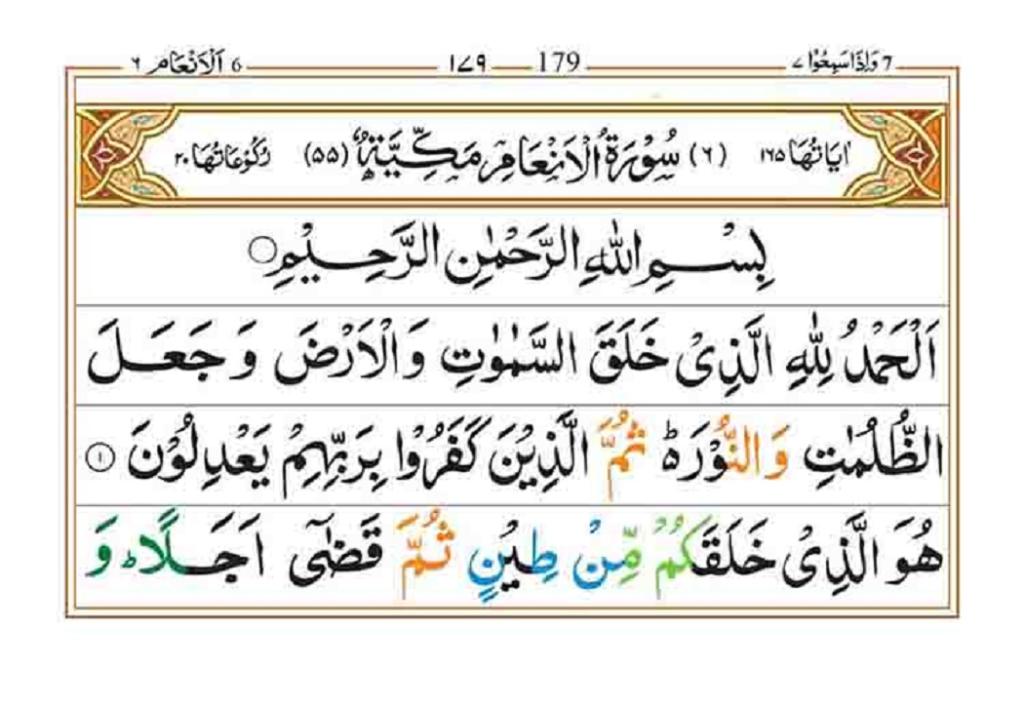 7 وَاِذَا سَمِعُوْا ٧ 179 ١٧٩ 6 اَلْاَنْعَام ٦
اٰيَاتُهَا ١٦٥ (٦) سُوْرَةُ الْاَنْعَامِ مَكِّيَّةٌ (٥٥) رُكُوْعَاتُهَا ٢٠
بِسْمِ اللّٰهِ الرَّحْمٰنِ الرَّحِيْمِ
اَلْحَمْدُ لِلّٰهِ الَّذِىْ خَلَقَ السَّمٰوٰتِ وَالْاَرْضَ وَجَعَلَ
الظُّلُمٰتِ وَالنُّوْرَ ؕ ثُمَّ الَّذِيْنَ كَفَرُوْا بِرَبِّهِمْ يَعْدِلُوْنَ ١
هُوَ الَّذِىْ خَلَقَكُمْ مِّنْ طِيْنٍ ثُمَّ قَضٰٓى اَجَلًا ؕ وَ